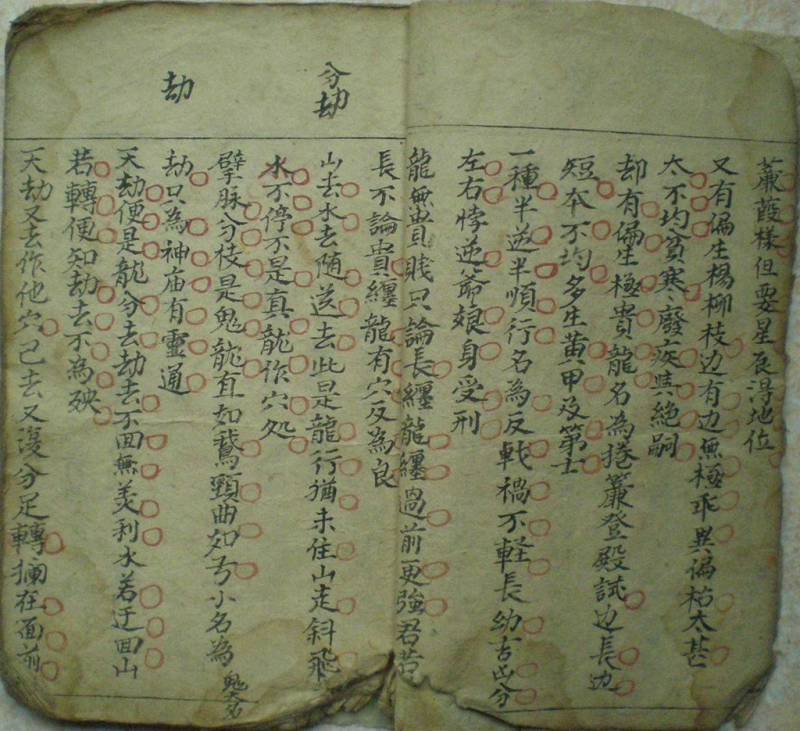 蒹葭樣但要星辰得地位
又有偏生楊柳枝边有边無極乖異偏枯太甚
太不均貧寒廢疾與絕嗣
却有偏生極貴龍名為捲簾登殿試边長边
短本不均多生黄甲及第士
一種半逆半順行名為反戟禍不軽長幼吉凶分
左右悖逆爺娘身受刑
龍無貴賤只論長纏龍纏過前更強君若
長不論貴纏龍有穴反為良
分劫
山去水去随送去此是龍行猶未住山走斜飛
水不停不是真龍作穴処
擘脉分枝是鬼龍直如鵞頸曲如弓小名為鬼大名
劫只為神庙有靈通
劫
天劫便是龍分去劫去不回無美利水若迂回山
若轉便知劫去不為殃
天劫又去作他穴已去又復分足轉攔在面前